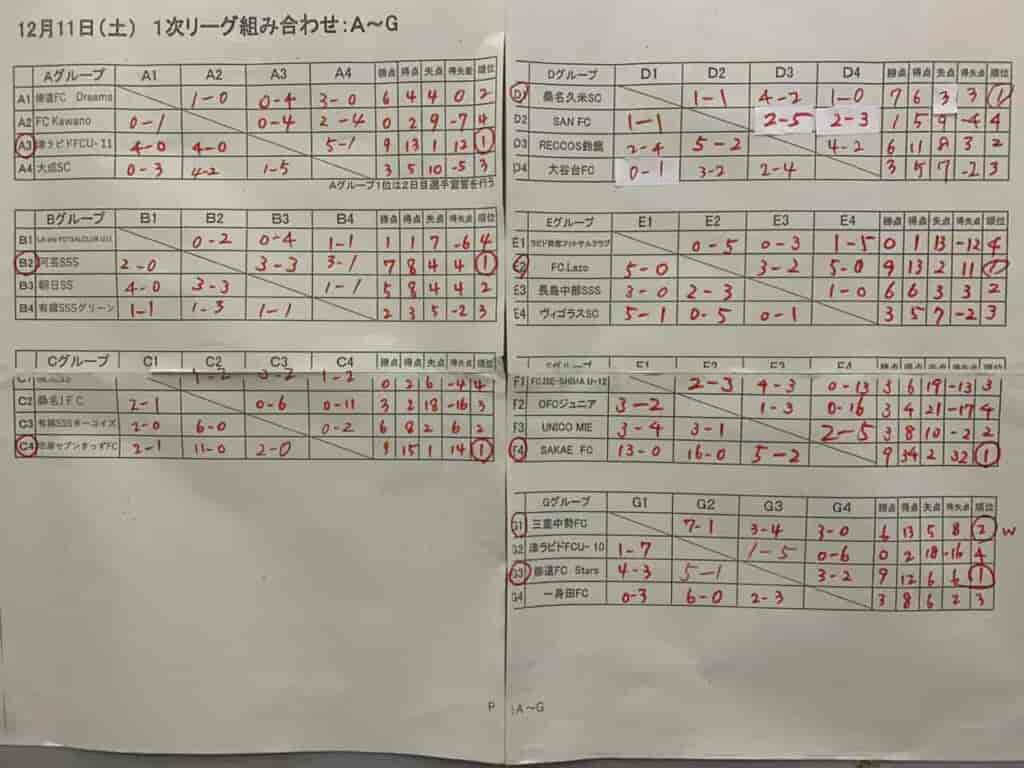 12月11日（土） 1次リーグ組み合わせ：A～G
Aグループ A1 A2 A3 A4 勝点 得点 失点 得失差 順位
A1 修道FC Dreams 1-0 0-4 3-0 6 4 4 0 2
A2 FC Kawano 0-1 0-4 2-4 0 2 9 -7 4
A3 津ラピドFCU-11 4-0 4-0 5-1 9 13 1 12 1
A4 大成SC 0-3 4-2 1-5 3 5 10 -5 3
Aグループ1位は2日目選手宣誓を行う
Bグループ B1 B2 B3 B4 勝点 得点 失点 得失点 順位
B1 0-2 0-4 1-1 1 1 7 -6 4
B2 河芸SSS 2-0 3-3 3-1 7 8 4 4 1
B3 朝日SS 4-0 3-3 1-1 5 8 4 4 2
B4 有緝SSSグリーン 1-1 1-3 1-1 2 3 5 -2 3
Cグループ C1 C2 C3 C4 勝点 得点 失点 得失点 順位
C1 1-2 0-2 1-2 0 2 6 -4 4
C2 桑名JFC 2-1 0-6 0-11 3 2 18 -16 3
C3 有緝SSSターコイズ 2-0 6-0 0-2 6 8 2 6 2
C4 セブンきっずFC 2-1 11-0 2-0 9 15 1 14 1
Dグループ D1 D2 D3 D4 勝点 得点 失点 得失点 順位
D1 桑名久米SC 1-1 4-2 1-0 7 6 3 3 1
D2 SAN FC 1-1 2-5 2-3 1 5 9 -4 4
D3 RECCOS鈴鹿 2-4 5-2 4-2 6 11 8 3 2
D4 大谷台FC 0-1 3-2 2-4 3 5 7 -2 3
Eグループ E1 E2 E3 E4 勝点 得点 失点 得失点 順位
E1 フットサルクラブ 0-5 0-3 1-5 0 1 13 -12 4
E2 FC.Lazo 5-0 3-2 5-0 9 13 2 11 1
E3 長島中部SSS 3-0 2-3 1-0 6 6 3 3 2
E4 ヴィゴラスSC 5-1 0-5 0-1 3 5 7 -2 3
Fグループ F1 F2 F3 F4 勝点 得点 失点 得失点 順位
F1 FC.ISE-SHIMA U-12 2-3 4-3 0-13 3 6 19 -13 3
F2 OFCジュニア 3-2 1-3 0-16 3 4 21 -17 4
F3 UNICO MIE 3-4 3-1 2-5 3 8 10 -2 2
F4 SAKAE FC 13-0 16-0 5-2 9 34 2 32 1
Gグループ G1 G2 G3 G4 勝点 得点 失点 得失点 順位
G1 三重中勢FC 7-1 3-4 3-0 6 13 5 8 2 W
G2 津ラピドFCU-10 1-7 1-5 0-6 0 2 18 -16 4
G3 修道FC Stars 4-3 5-1 3-2 9 12 6 6 1
G4 一身田FC 0-3 6-0 2-3 3 8 6 2 3
P
A～G